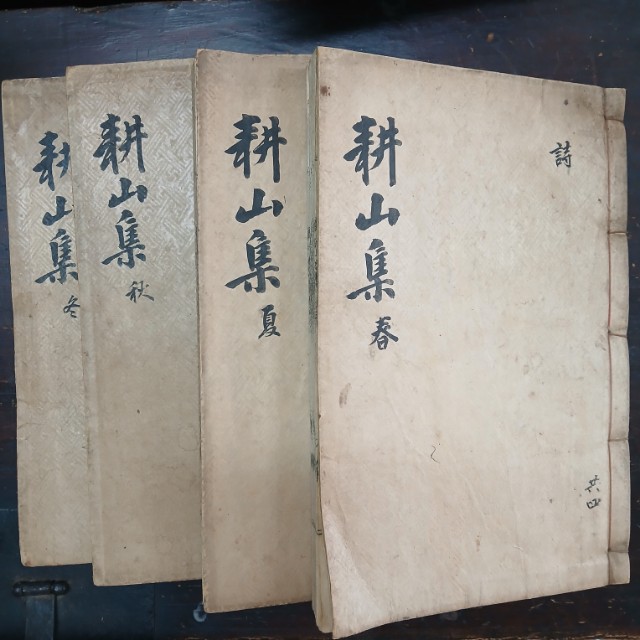 詩
共四
耕山集 春
耕山集 夏
耕山集 秋
耕山集 冬